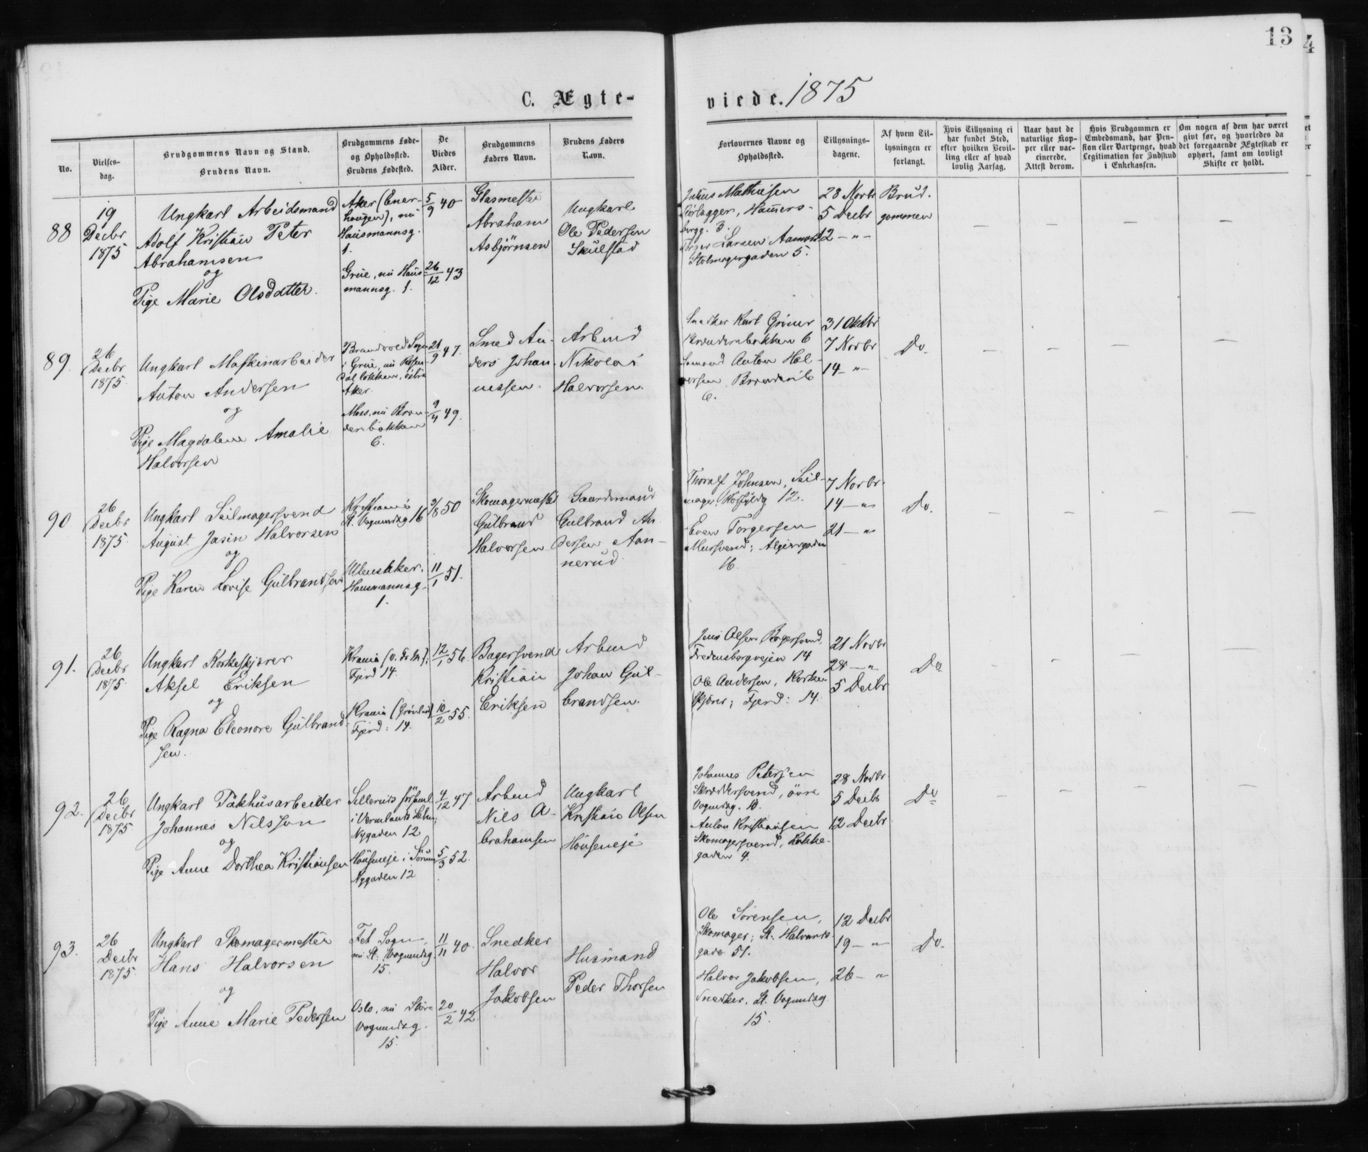 13
C. Ægte- viede. 1875
No.
Vielses-dag.
Brudgommens Navn og Stand.
Brudens Navn.
Brudgommens Føde- og Opholdssted.
Brudens Fødested.
De Viedes Alder.
Brudgommens Faders Navn.
Brudens Faders Navn.
Forlovernes Navne og Opholdssted.
Tillysnings-dagene.
Af hvem Tillysningen er forlangt.
Hvis Tillysning ei har fundet Sted, efter hvilken Bevilling eller af hvad lovlig Aarsag.
Naar havt de naturlige Kopper eller vaccinerede, Attest derom.
Hvis Brudgommen er Embedsmand, har Pension eller Vartpenge, hvad Legitimation for Indskud i Enkekassen.
Om nogen af dem har været gift før, og hvorledes da det foregaaende Ægteskab er ophørt, samt om lovligt Skifte er holdt.
88
19
Decbr
1875
Ungkarl Arbeidsmand
Adolf Kristian Peter
Abrahamsen
og
Pige Marie Olsdatter.
Aker (Ener-
haugen), nu
Hausmannsg.
1.
Grue, nu Haus-
mannsg. 1.
5/9 40
26/12 43
Glasmester
Abraham
Asbjørnsen
Ungkarl
Ole Pedersen
Skulstad
Julius Mathiesen
28 Novbr
5 Decbr
12 — „
Larsen Aamodt
Stolmagergaden 5.
Brud-
gommen
89.
26
Decbr
1875
Ungkarl Maskinarbeider
Anton Andersen
og
Pige Magdalene Amalie
Halvorsen
Brandvold Sogn
i Grue, nu Rosen-
dalløkken, østre
Aker.
Moss, nu Bron-
derubakken
6.
21/9 47.
9/4 49.
Smed An-
ders Johan-
nesen.
Arbmd
Nikolai
Halvorsen
Snedker Karl
6
Anton Hal-
vorsen
6.
31 Oktbr
7 Novbr
14 — „
Do.
90
26
Decbr
1875.
Ungkarl Seilmagersvend
August Halvorsen
og
Pige Karen Lovise Gulbrandsen
Kristiania
St. Vognmdsg 16
Hausmannsg.
1.
50
11/1 51.
Skomagermester
Gulbrand
Halvorsen
Gaardmand
Gulbrand An-
dersen Aan-
nerud
Thoralf Johnsen, Seil-
mager, 12.
Even Torgersen
Mursvend;
16.
7 Novbr.
14 — „
21 — „
Do.
91.
26
Decbr
1875.
Ungkarl Korkeskjærer
Aksel Eriksen
og
Pige Ragna Eleonore Gulbrand-
sen.
Krania
Fjerd 14.
Krania (Grønland)
Fjerd: 14.
12/1 56.
10/2 55.
Bagersvend
Kristian
Eriksen
Arbmd
Johan Gul-
brandsen
Jens Olsen Bagersvend
Fredensborgveien 14
Ole Andersen, Korke-
skjærer; Fjerd: 14.
21 Novbr
28 — „
5 Decbr
Do
92.
26
Decbr
1875
Ungkarl Pakhusarbeider
Johannes Nilsson
og
Pige Anne Dorthea Kristiansen
Silleruds forsaml.
i Vermlands Lehn,
Nygaden 12
Houseneje i Sørum
Nygaden 12
4/12 47
5/3 52.
Arbmd
Nils A-
brahamsen
Ungkarl
Kristian Olsen
Houseneje
Johannes Petersen
Skræddersvend, øvre
Vognmdsg. 10.
Anton Kristiansen
Skomagersvend, Løkke-
gaden 4.
28 Novbr
5 Decbr
12 Decbr
Do
93.
26
Decbr
1875
Ungkarl Skomagermester
Hans Halvorsen
og
Pige Anne Marie Pedersen
Fet Sogn,
nu St. Vognmdsg.
15.
Oslo, nu Store
Vognmdsg.
15.
11/11 40.
20/2 42
Snedker
Halvor
Jakobsen
Husmand
Peder Thorsen
Ole Sørensen,
Skomager; St. Halvards
gade 51.
Halvor Jakobsen,
Snedker, St. Vognmdsg
15.
12 Decbr
19 — „
26 — „
Do.